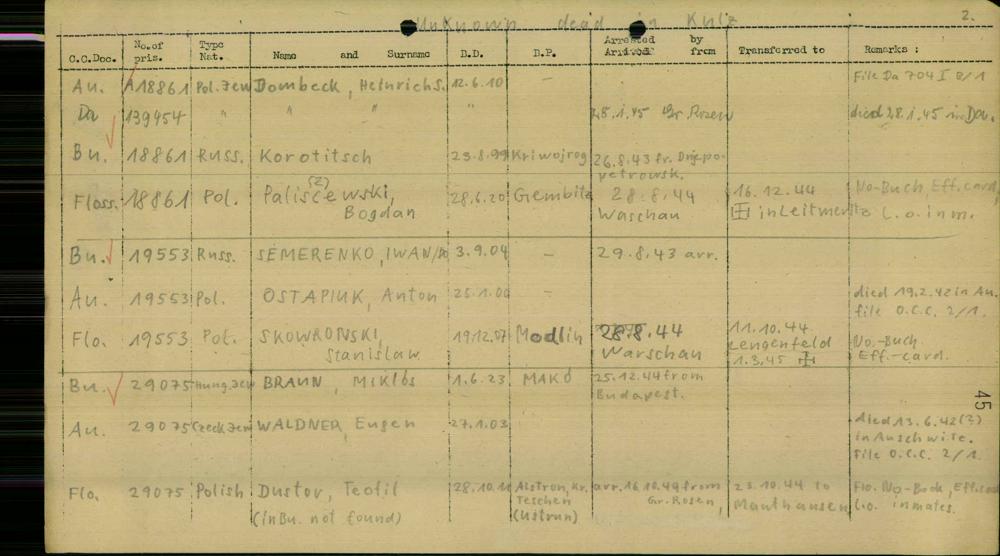 Unknown dead in Kulz 2.
C.C.Doc. No. of pris. Type Nat. Name and Surname D.D. D.P. Arrested by Arrived from Transferred to Remarks :
Au. A18861 Pol. Jew Dombeck, Heinrich S. 12.6.10 - File Da 704 I
Da 139454 " " " " 28.1.45 Gr. Rosen died 28.1.45 in Da.
Bu. 18861 Russ. Korotitsch 23.8.99 Kriwojrog 26.8.43 fr. Dnjepo-
petrowsk.
Floss. 18861 Pol. Paliscewski, (z) 28.6.20 Gembitz 28.8.44 16.12.44 No-Buch, Eff.card,
Bogdan Waschau in Leitmeritz L.o.inm.
Bu. 19553 Russ. SEMERENKO, IWAN 3.9.04 - 29.8.43 arr.
Au. 19553 Pol. OSTAPIUK, Anton 25.1.00 - died 19.2.42 in Au.
file O.C.C. 2/1.
Flo. 19553 Pol. SKOWRONSKI, 19.12.07 Modlin 28.8.44 11.10.44 No.-Buch
Stanislaw Warschau Lengenfeld Eff.-card.
1.3.45
Bu. 29075 Hung. Jew BRAUN, Miklós 1.6.23 MAKÓ 25.12.44 from
Budapest.
45
Au. 29075 Czeck Jew WALDNER, Eugen 27.1.03 died 13.6.42 (?)
in Auschwitz.
File O.C.C. 2/1.
Flo. 29075 Polish Dustor, Teofil 28.10. Kr. arr. 16.10.44 from 23.10.44 to Flo. No-Book, Eff.card
Teschen Gr. Rosen, Mauthausen L.o. inmates.
(in Bu. not found) (Ustrun)